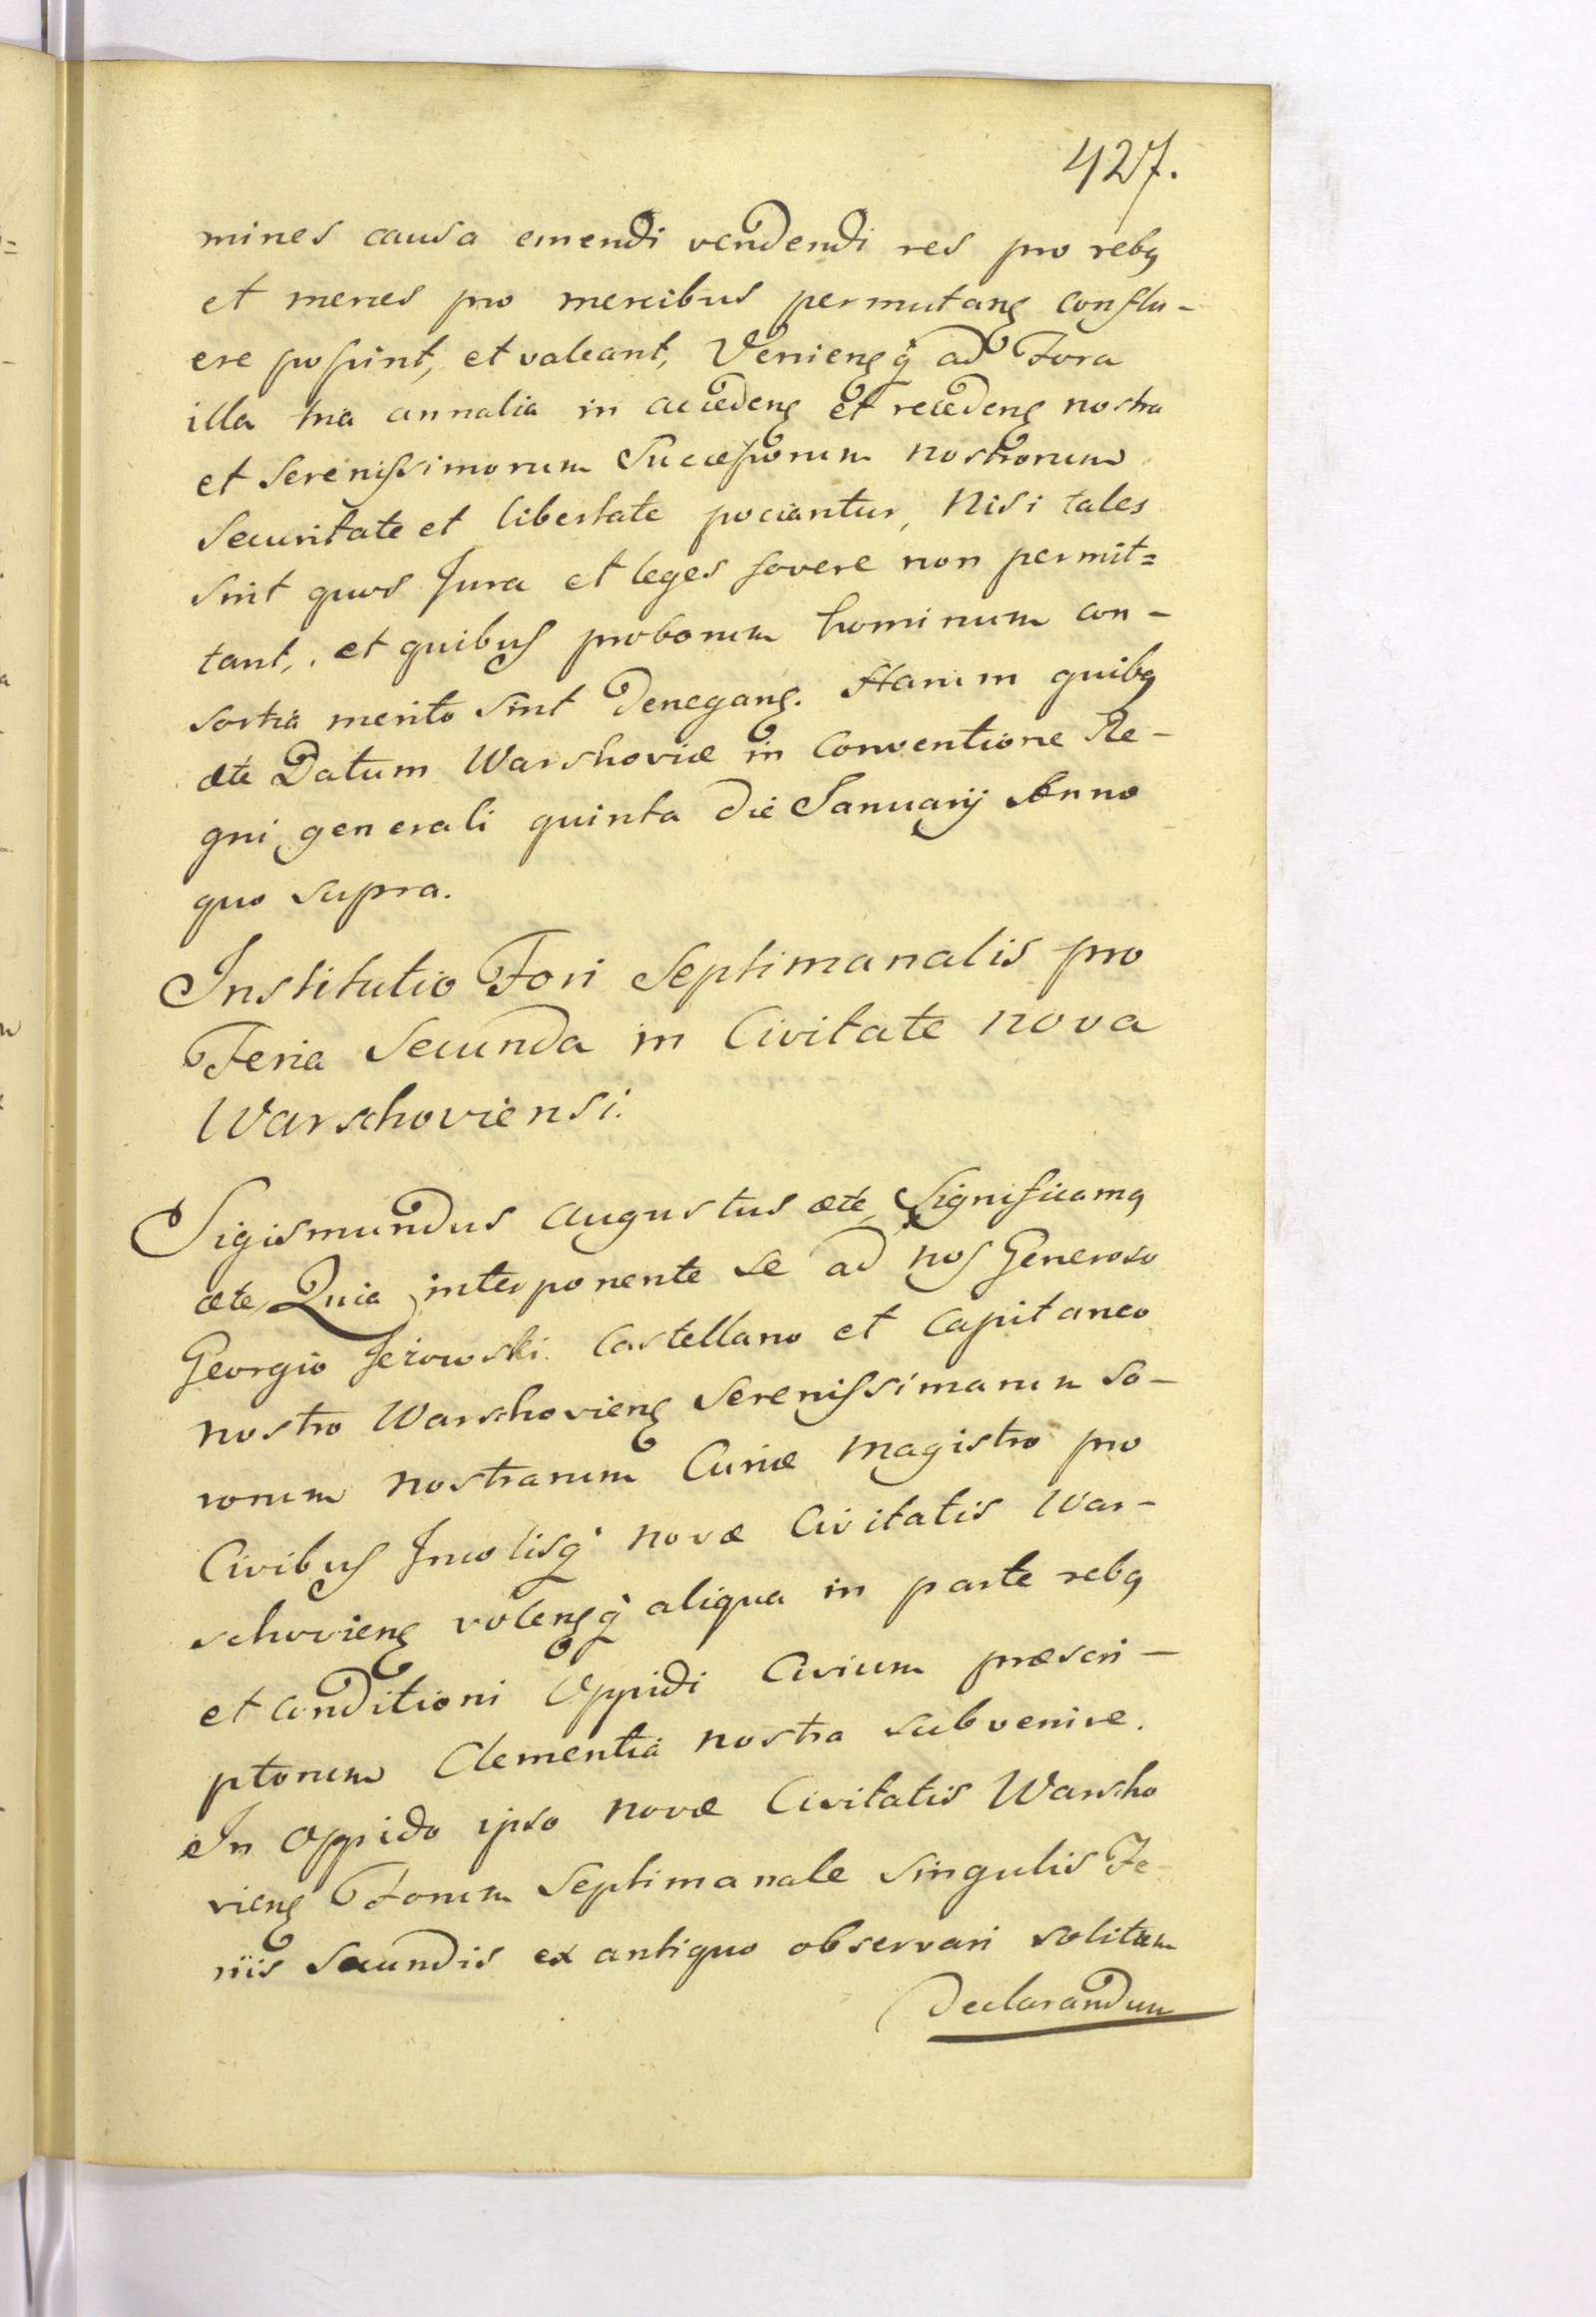 427.
mines causa emendi vendendi res pro rebꝫ
et merces pro mercibus permutanꝫ conflu-
ere poſsint, et valeant, Venienꝫq̃ ad Fora
illa tria annalia in accedenꝫ et recedenꝫ nostra
et Sereniſsimorum Succeſsorum nostrorum
Securitate et libertate pociantur, Nisi tales
sint quos Jura et leges fovere non permit=
tant, et quibuſ proborum hominum con-
sortia merito sint deneganꝫ. Harum quibꝫ
ætc Datum Warshoviæ in Conventione Re-
gni generali quinta die Januarij Anno
quo supra.
Institutio Fori Septimanalis pro
Feria Secunda in Civitate nova
Warschoviensi.
Sigismundus Augustus ætc Significamꝫ
ætc Quia interponente se ad noſ Generoso
Georgio Jezowski Castellano et Capitaneo
nostro Warschovienꝫ Sereniſsimarum So-
rorum nostrarum Curiæ Magistro pro
Civibuſ Incolisq̃ novæ Civitatis War-
schovienꝫ volenꝫq̃ aliqua in parte rebꝫ
et conditioni Oppidi Civium præscri-
ptorum Clementia nostra subvenire.
In Oppido ipso novæ Civitatis Warscho
vienꝫ Forum Septimanale singulis Fe-
riis Secundis ex antiquo observari solitum
declarandum